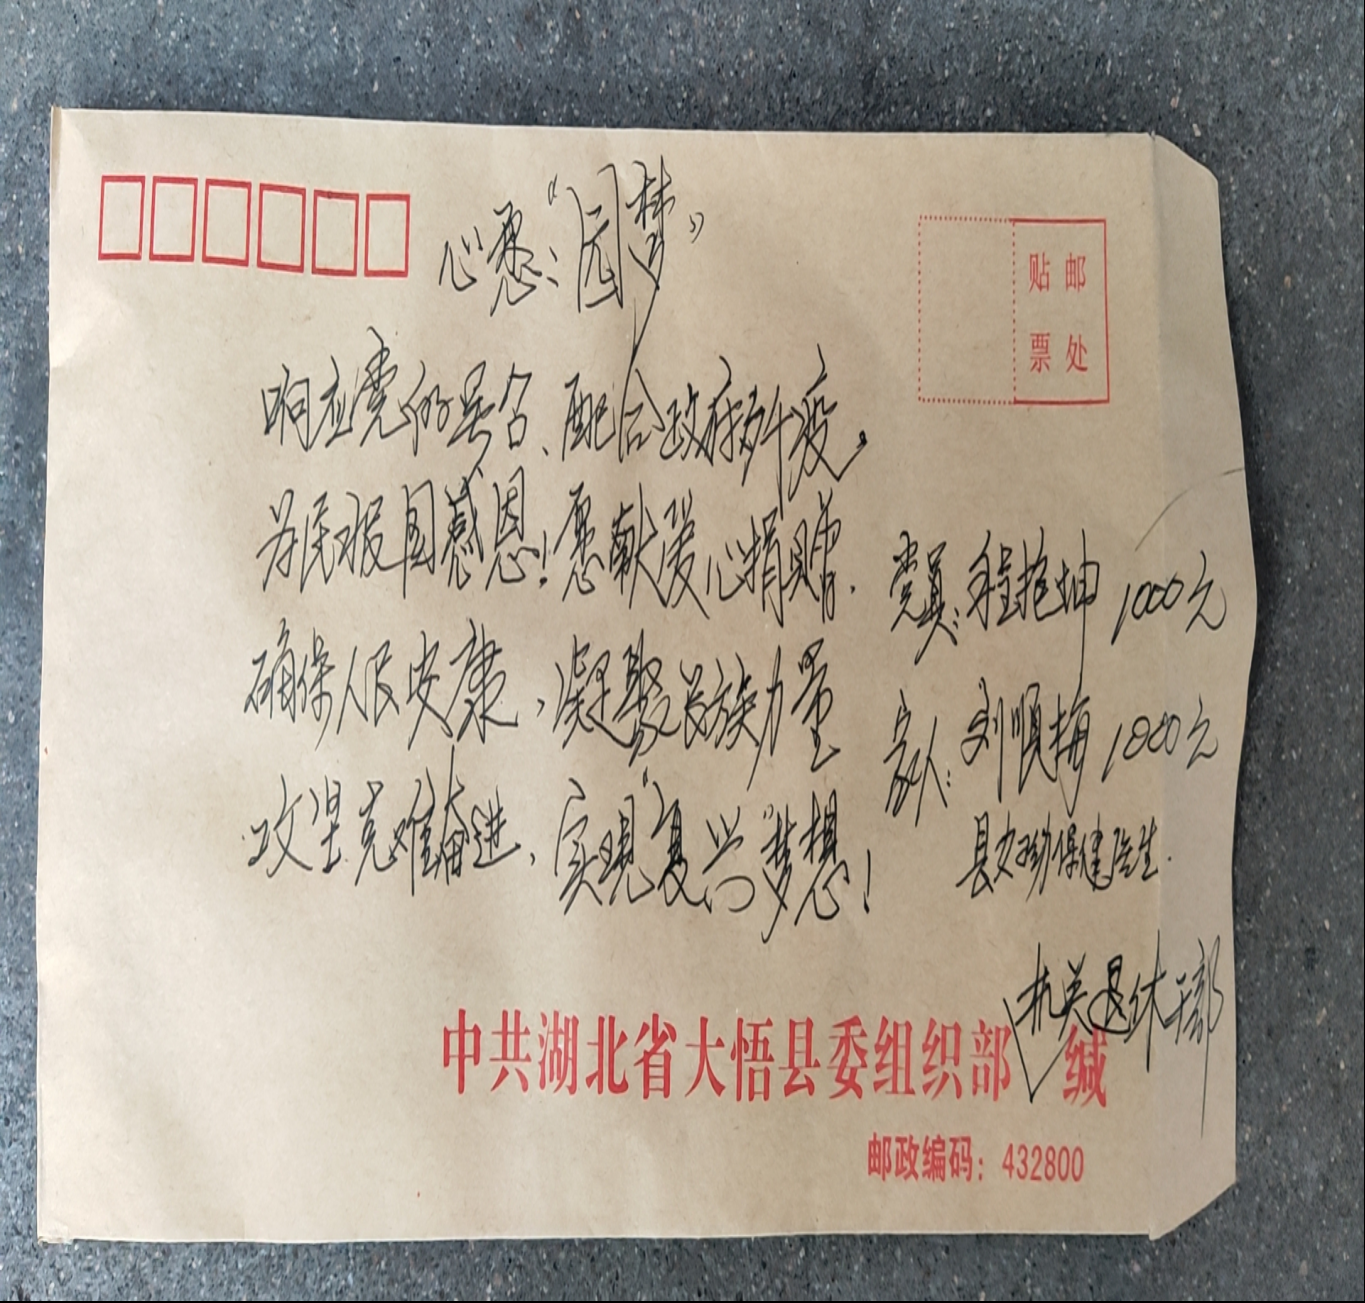 心愿："园梦"
贴邮
票处
响应党的号召、配合政府抗疫。
为民报国感恩！愿献爱心捐赠.
确保人民安康，凝聚民族力量
攻坚克难奋进，实现"复兴"梦想！
党员：程抱坤 1000元
家人：刘顺梅 1000元
县妇幼保健医生.
机关退休干部
中共湖北省大悟县委组织部 缄
邮政编码：432800